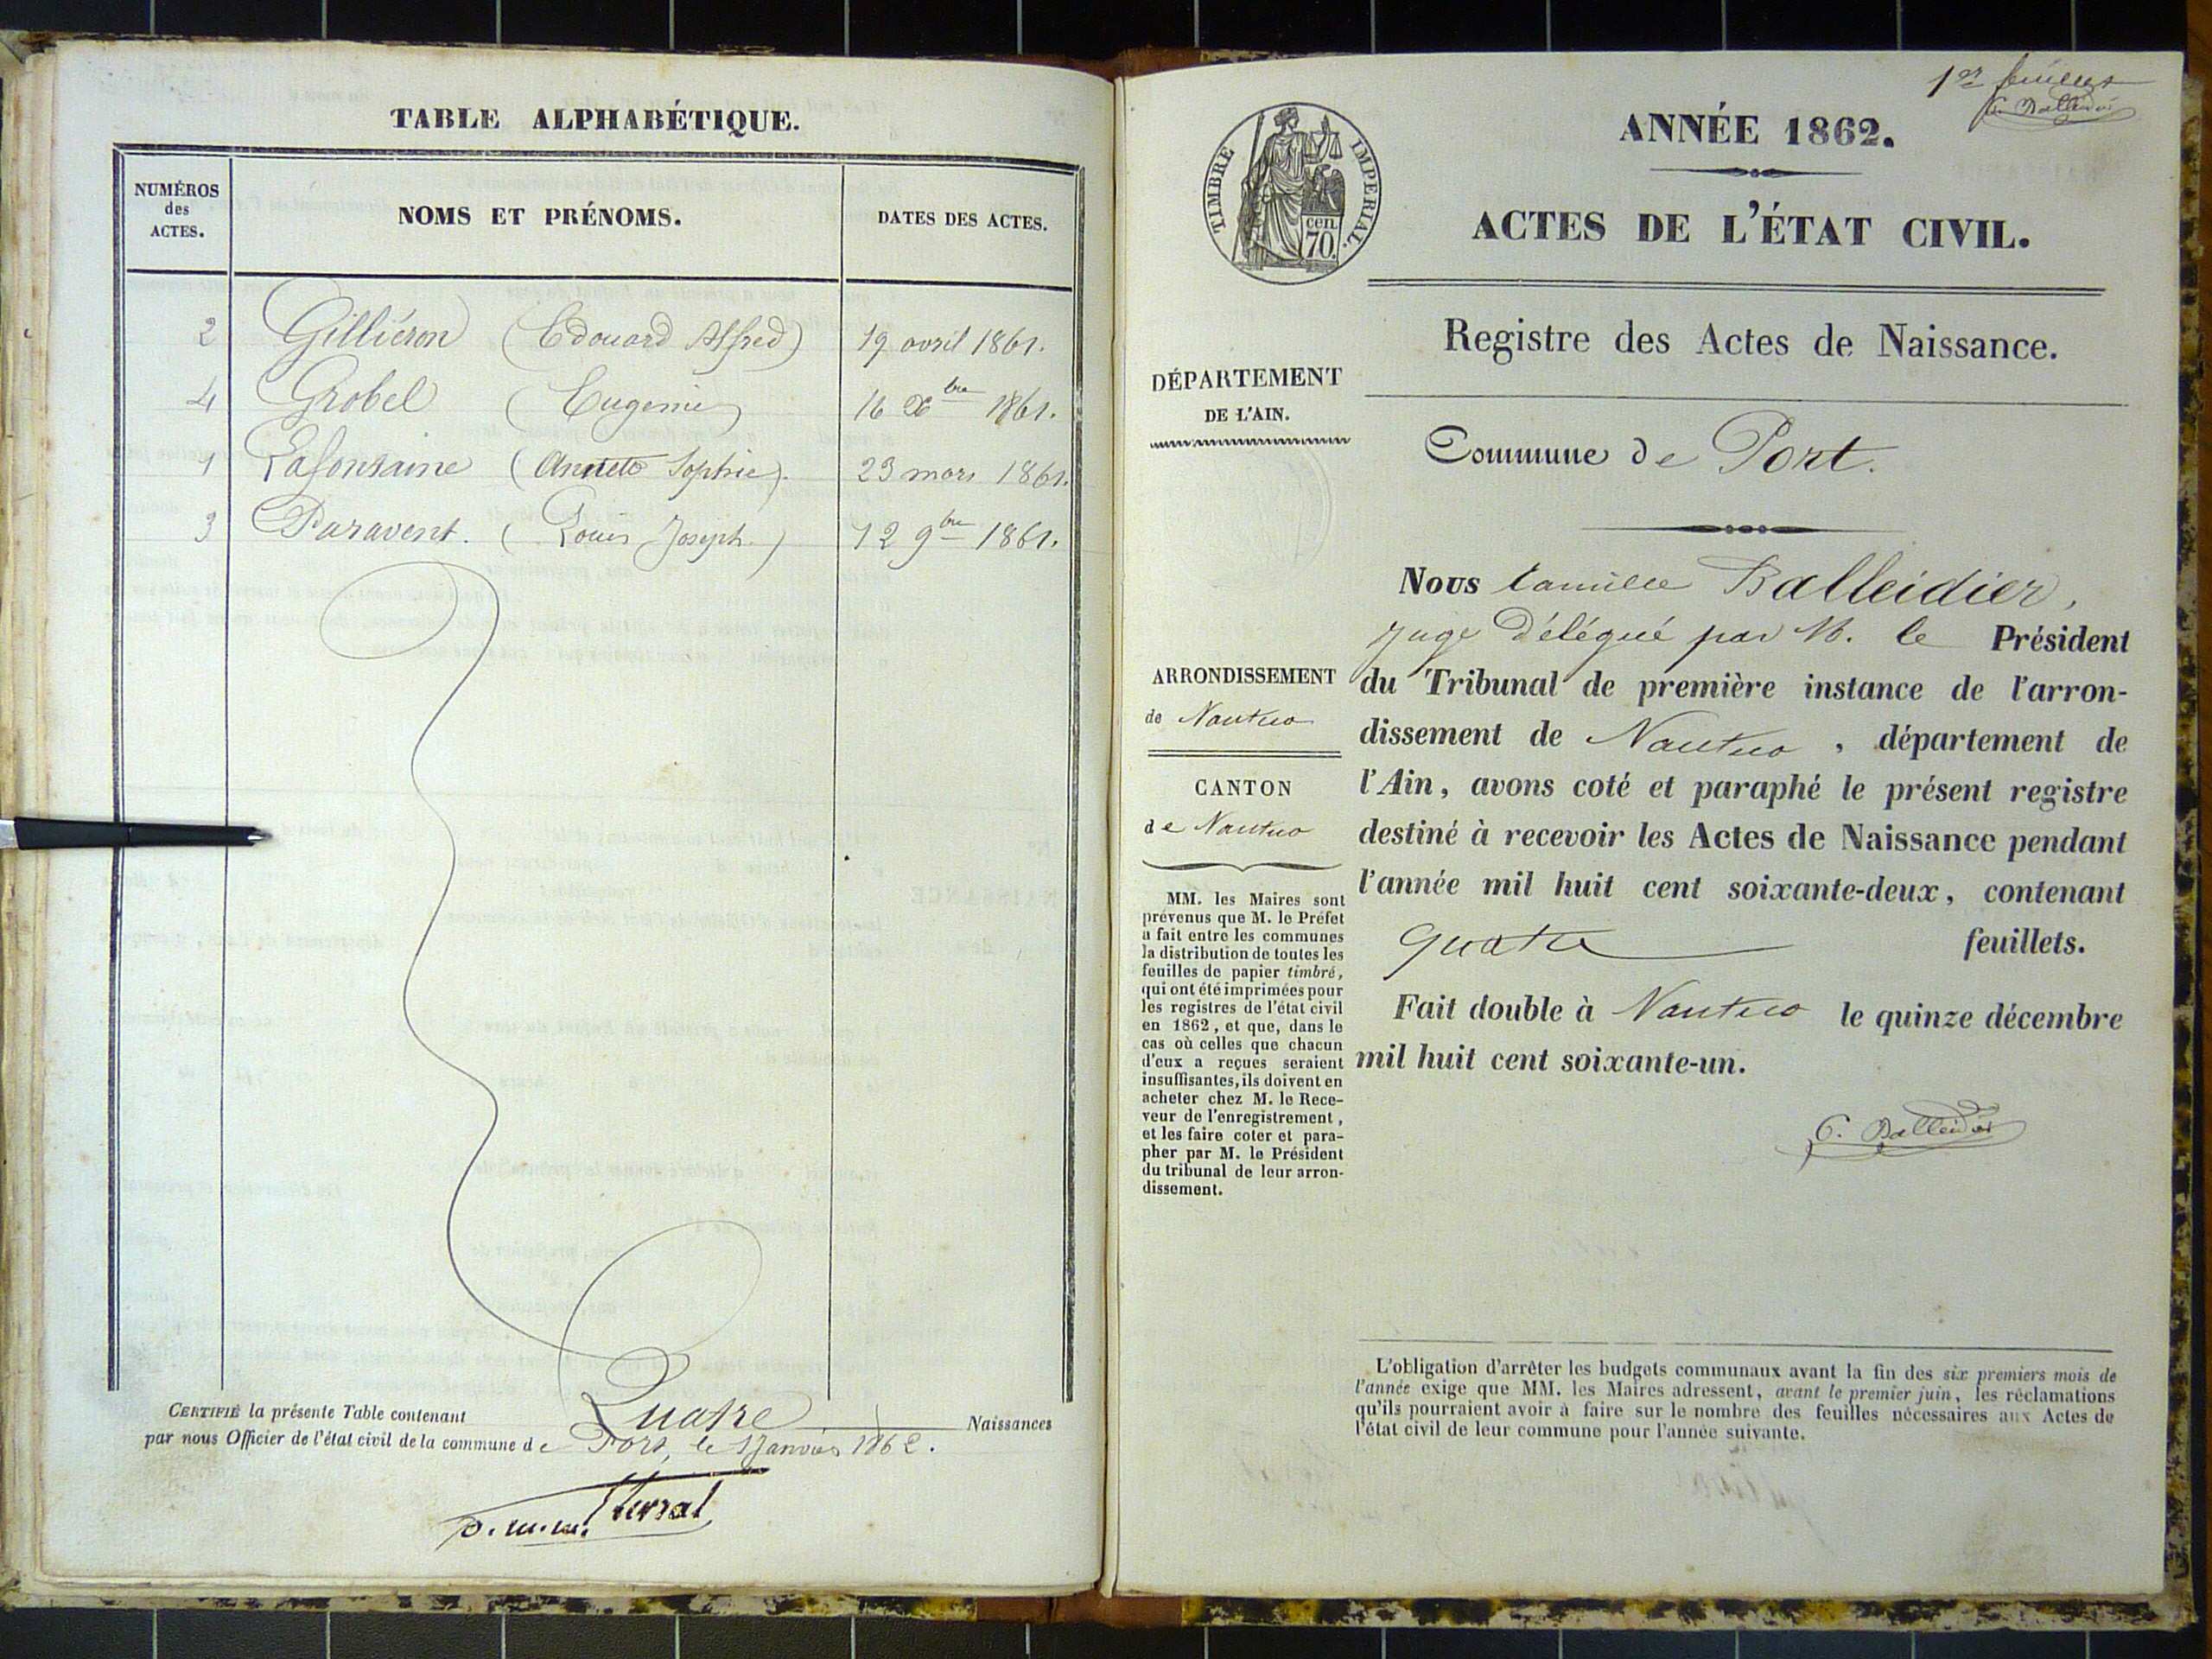 TABLE ALPHABÉTIQUE.
NUMÉROS des ACTES.
NOMS ET PRÉNOMS.
DATES DES ACTES.
2 Gilliéron (Edouard Alfred) 19 avril 1861.
4 Grobel (Eugenie) 16 Xbre 1861.
1 Lafontaine (Annette Sophie). 23 mars 1861.
3 Paravent. (Louis Joseph.) 12 9bre 1861.
CERTIFIÉ la présente Table contenant Quatre Naissances
par nous Officier de l'état civil de la commune de Port, le 1 Janvier 1862.
1er feuillet
C. Balleidier
TIMBRE IMPÉRIAL.
cen. 70.
ANNÉE 1862.
ACTES DE L'ÉTAT CIVIL.
Registre des Actes de Naissance.
DÉPARTEMENT
DE L'AIN.
Commune de Port.
ARRONDISSEMENT
de Nantua
CANTON
de Nantua
MM. les Maires sont
prévenus que M. le Préfet
a fait entre les communes
la distribution de toutes les
feuilles de papier timbré,
qui ont été imprimées pour
les registres de l'état civil
en 1862, et que, dans le
cas où celles que chacun
d'eux a reçues seraient
insuffisantes, ils doivent en
acheter chez M. le Rece-
veur de l'enregistrement,
et les faire coter et para-
pher par M. le Président
du tribunal de leur arron-
dissement.
Nous Camille Balleidier,
Juge délégué par M. le Président
du Tribunal de première instance de l'arron-
dissement de Nantua, département de
l'Ain, avons coté et paraphé le présent registre
destiné à recevoir les Actes de Naissance pendant
l'année mil huit cent soixante-deux, contenant
quatre feuillets.
Fait double à Nantua le quinze décembre
mil huit cent soixante-un.
C. Balleidier
L'obligation d'arrêter les budgets communaux avant la fin des six premiers mois de
l'année exige que MM. les Maires adressent, avant le premier juin, les réclamations
qu'ils pourraient avoir à faire sur le nombre des feuilles nécessaires aux Actes de
l'état civil de leur commune pour l'année suivante.